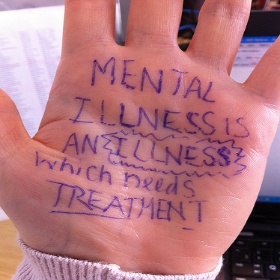 MENTAL
ILLNESS IS
AN ILLNESS
which needs
TREATMENT